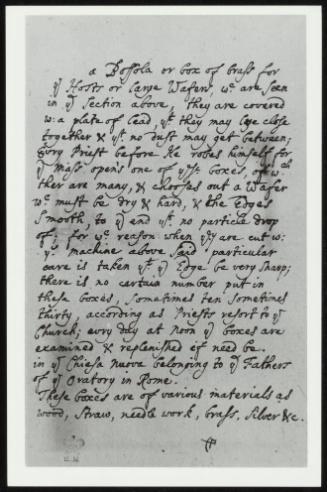 a Bossola or box of brass for
yͤ Hosts or large Wafers, wͨ are seen
in yͤ Section above, they are covered
w:a plate of Lead yͭ they may lye close
together & yͭ no dust may get between;
Every Priest before He robes himself for
yͤ Mass opens one of yͤˢᵉ boxes, of wᶜʰ
ther are many, & chooses out a Wafer
wͨ must be dry & hard, & the Edges
Smooth, to yͤ end yͭ no particle drop
of, for wͨ reason when yͤy are cut w:
yͤ machine above said particular
care is taken yͭ yͤ Edge be very sharp;
there is no certain number put in
these boxes, sometimes ten sometimes
thirty, according as Priests resort to yͤ
Church; every day at Noon yͤ boxes are
examined & replenished if need be.
in yͤ Chiesa nuova belonging to yͤ Fathers
of yͤ Oratory in Rome.
These boxes are of various materials as
wood, straw, needle work, brass, silver &c.